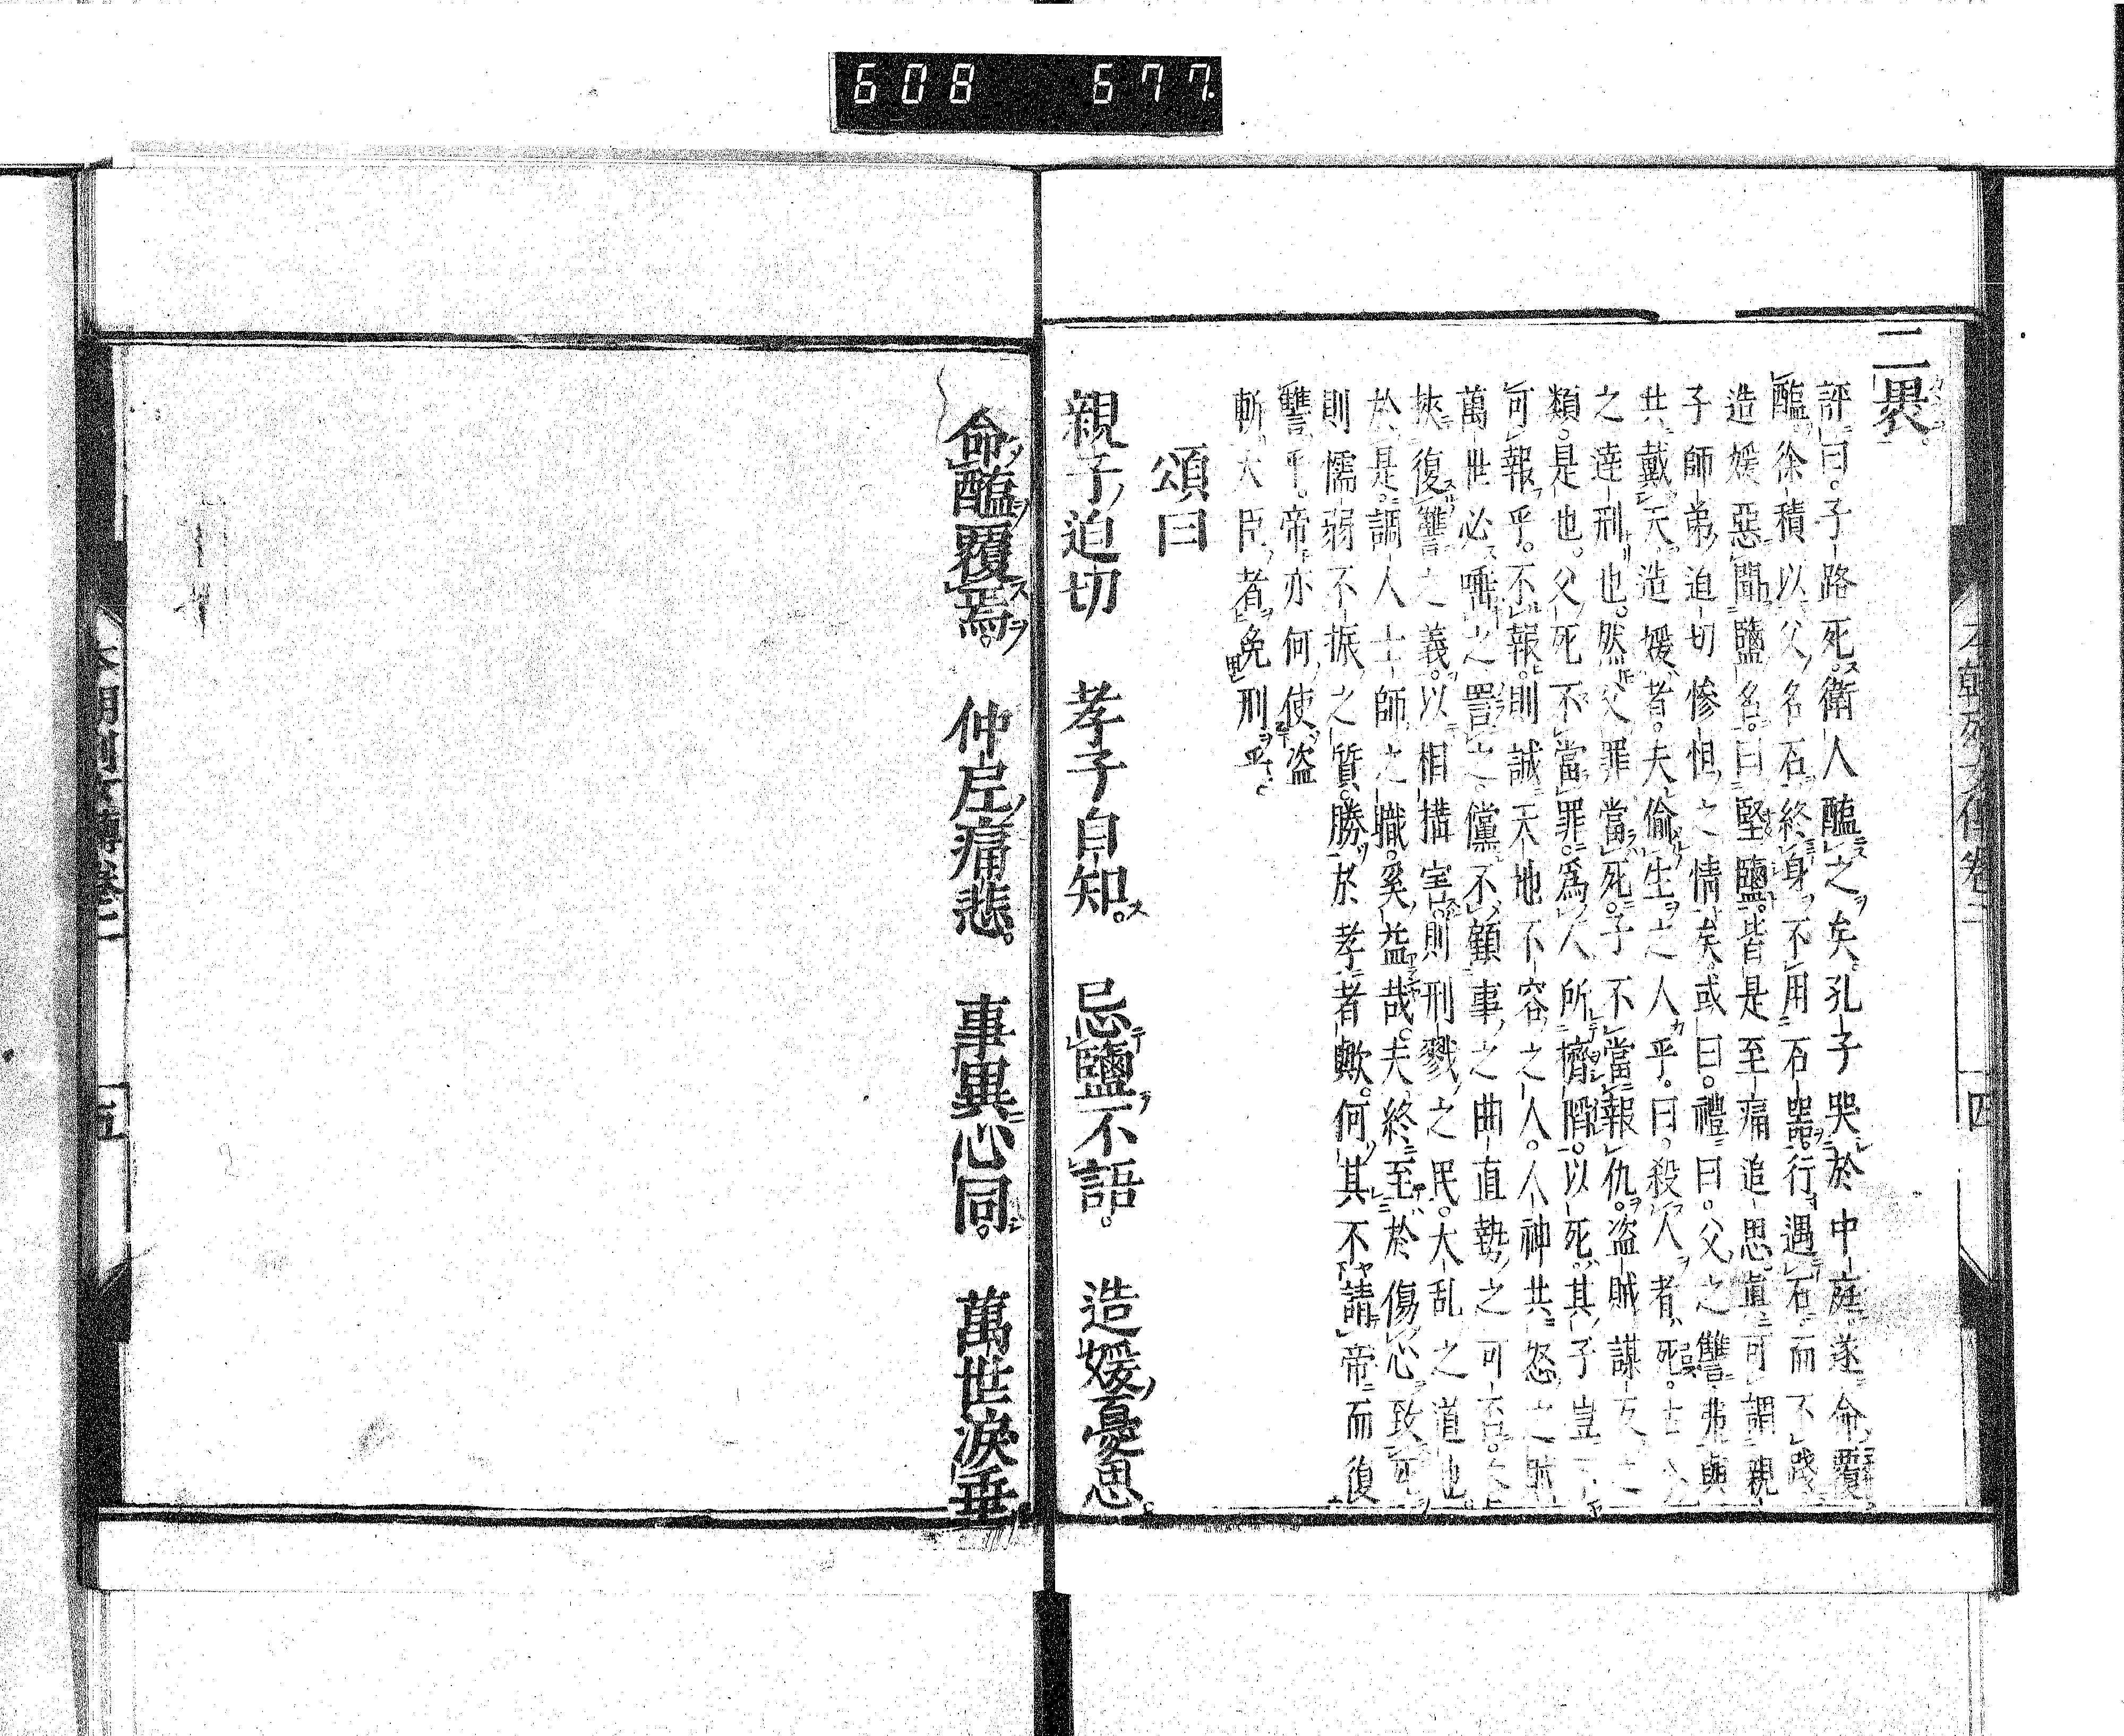 608 677.
二畏
評曰。子路死。衛人醢之矣。孔子哭於中庭。遂命覆
醢。徐積以父名石。終身不用石器。行遇石而不踐
造媛惡聞鹽名。曰堅鹽。皆是至痛追思。眞可謂親
子師弟迫切慘怛之情矣。或曰。禮曰。父之讐弗與
共戴天。造媛者。夫偷生之人乎。曰。殺人者死。古
之達刑也。然父罪當死。子不當報仇。盗賊謀反之
類是也。父死不當罪。爲人所擠陷。以死其子豈
可報乎。不報則誠天地不容之人。人神共怒之
萬世必唾之詈之。儻不顧事之曲直勢之可否。
挾復讐之義。以相搆害。則刑戮之民。大乱之道也。
於是調人士師之職。奚益哉。夫終至於傷心致
則懦弱不振之質。勝於孝者歟。何其不請帝而復
讐乎。帝亦何使盗
斬大臣者免刑乎。
頌曰
親子迫切 孝子自知。 忌鹽不語。 造媛憂思。
命醢覆焉。 仲尼痛悲。 事異心同。 萬世淚垂
卷二 四
五